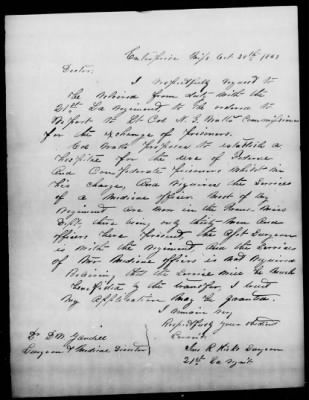 Enterprise Miss Oct 30th 1863
Doctor,
I respectfully request to
be relieved from duty with the
21st La Regiment, to be ordered to
report to Lt Col N. G. Watts Commissioner
for the exchange of prisoners.
Col Watts proposes to establish a
Hospital for the use of Federal
and Confederate prisoners whilst in
his charge, and requires the services
of a Medical officer. Most of my
Regiment are now in the Trans. Miss
Dept, there being only thirty men and
officers here present the Asst Surgeon
is with the Regiment and the services
of two Medical officers is not required
Believing that the service will be much
benefited by the transfer, I trust
my application may be granted.
I remain very
Respectfully your obedient
Servt
Jas R Hicks Surgeon
21st La Regt
Dr D W Yandell
Surgeon & Medical Director